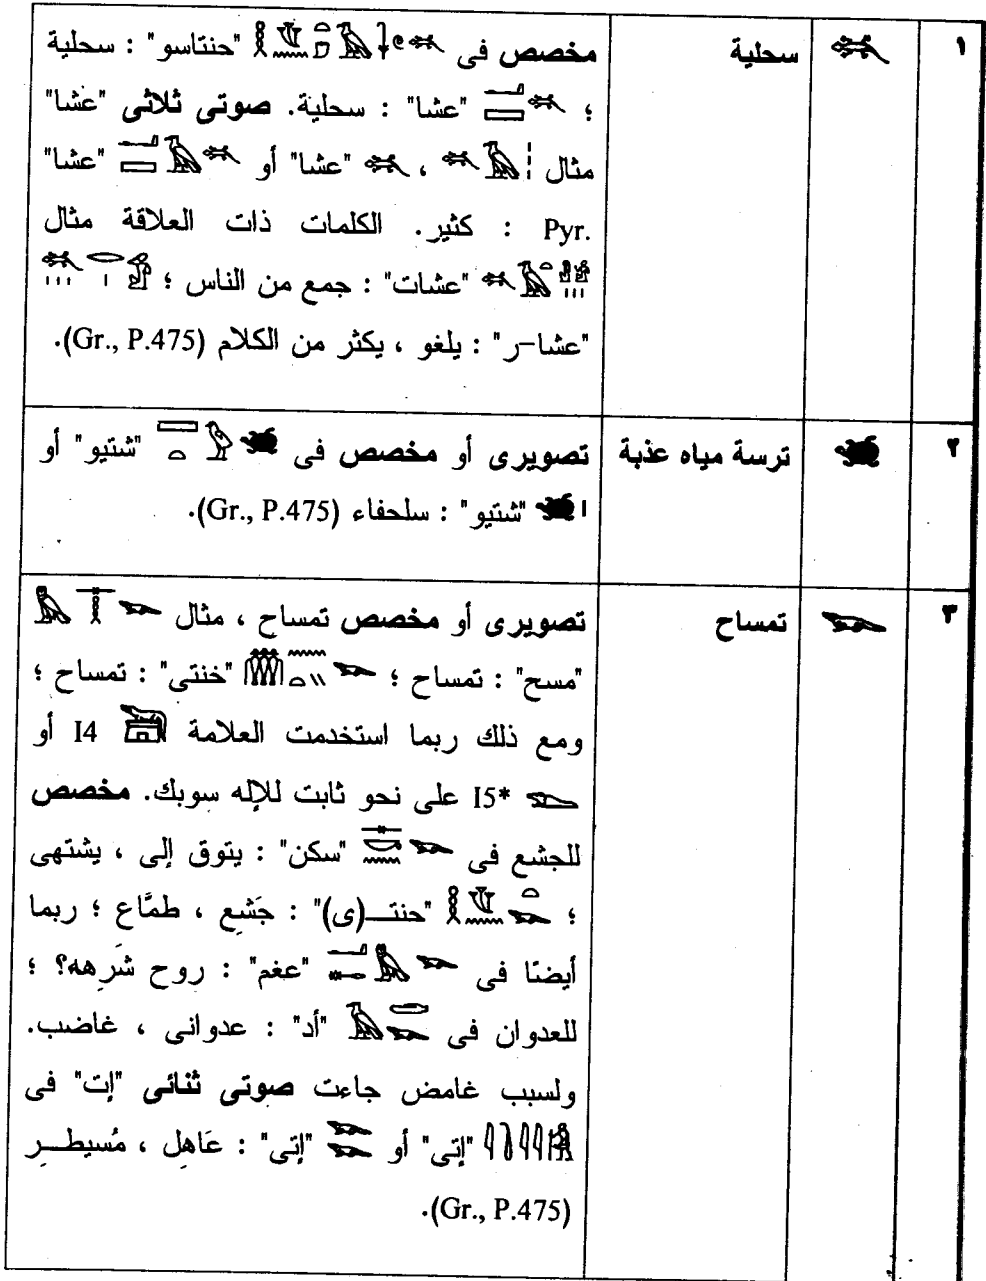 ١ سحلية مخصص فى 𓎛𓈖𓏏𓄿𓋴𓏲𓆈 "حنتاسو" : سحلية
؛ 𓂝𓈙𓆈 "عشا" : سحلية. صوتى ثلاثى "عشا"
مثال 𓆈𓄿𓏪 ، 𓆈 "عشا" أو 𓂝𓈙𓄿𓆈 "عشا"
Pyr. : كثير. الكلمات ذات العلاقة مثال
"عشات" : جمع من الناس ؛
"عشا-ر" : يلغو ، يكثر من الكلام (Gr., P.475).
٢ ترسة مياه عذبة تصويرى أو مخصص فى "شتيو" أو
"شتيو" : سلحفاء (Gr., P.475).
٣ تمساح تصويرى أو مخصص تمساح ، مثال
"مسح" : تمساح ؛ "خنتى" : تمساح ؛
ومع ذلك ربما استخدمت العلامة 𓆋 I4 أو
I5* على نحو ثابت للإله سوبك. مخصص
للجشع فى "سكن" : يتوق إلى ، يشتهى
؛ "حنتـ(ى)" : جَشِع ، طمَّاع ؛ ربما
أيضًا فى "عغم" : روح شَرِهه؟ ؛
للعدوان فى "أد" : عدوانى ، غاضب.
ولسبب غامض جاءت صوتى ثنائى "إت" فى
"إتى" أو 𓆊𓆊 "إتى" : عَاهِل ، مُسيطـر
(Gr., P.475).